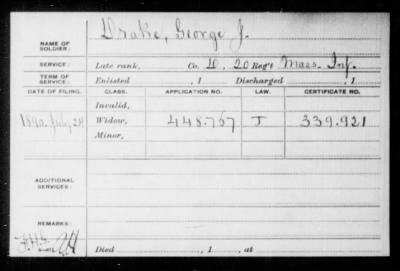 Drake, George J.
NAME OF
SOLDIER:
SERVICE: Late rank, Co. D, 20 Reg't Mass. Inf.
TERM OF
SERVICE: Enlisted , 1 Discharged , 1
DATE OF FILING. CLASS. APPLICATION NO. LAW. CERTIFICATE NO.
Invalid,
1890, July, 24 Widow, 448.767 J 339.921
Minor,
ADDITIONAL
SERVICES:
REMARKS:
Died , 1 , at